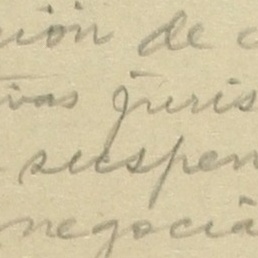 ción de c
ivas juris
suspen
negocia